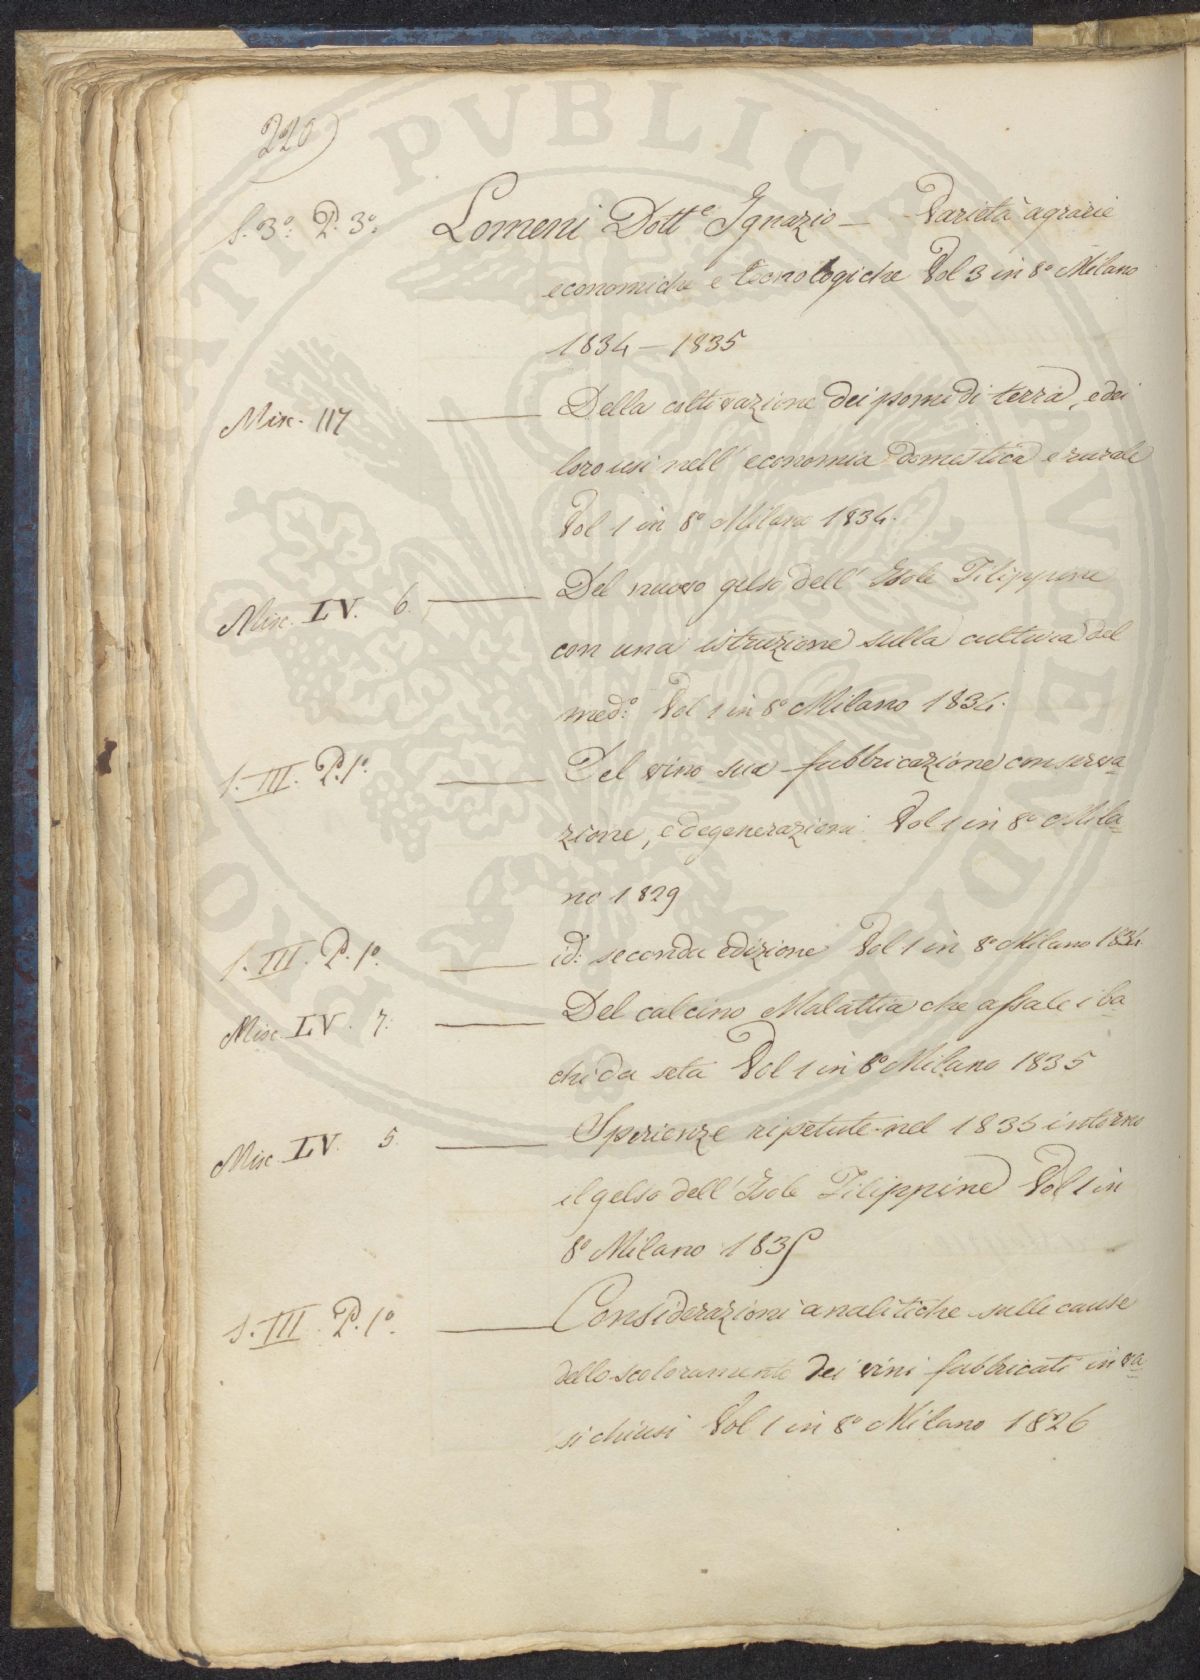 220
S. 3º. P. 3º. Lomeni Dott.e Ignazio — Varietà agrarie
economiche e tecnologiche Vol 3 in 8º Milano
1834 — 1835
Misc. 117 —— Della coltivazione dei pomi di terra, e dei
loro usi nell' economia domestica e rurale
Vol 1 in 8º Milano 1834.
Misc. LV. 6. —— Del nuovo gelso dell' Isole Filippine
con una istruzione sulla cultura del
med.º Vol 1 in 8º Milano 1834.
S. III. P. 1º. —— Del vino sua fabbricazione conserva=
zione, e degenerazioni Vol 1 in 8º Mila=
no 1829
S. III. P. 1º. —— id: seconda edizione Vol 1 in 8º Milano 1834
Misc. LV. 7. —— Del calcino Malattia che assale i ba=
chi da seta Vol 1 in 8º Milano 1835
Misc. LV. 5. —— Sperienze ripetute nel 1835 intorno
il gelso dell' Isole Filippine Vol 1 in
8º Milano 1835
S. III. P. 1º. —— Considerazioni analitiche sulle cause
dello scoloramento dei vini fabbricati in va=
si chiusi Vol 1 in 8º Milano 1826